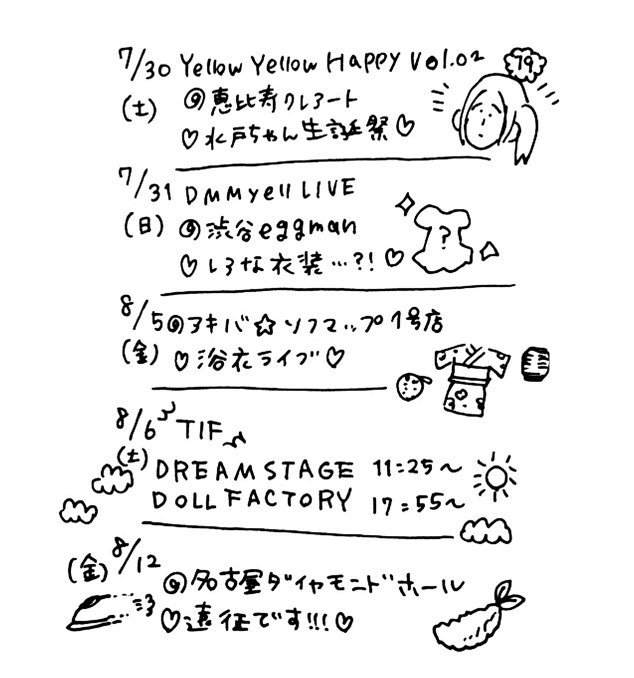 7/30 Yellow Yellow Happy Vol.02
79
(土) @恵比寿クレアート
♡水戸ちゃん生誕祭♡
7/31 DMMyell LIVE
(日) @渋谷eggman
♡しろな衣装…?!♡
?
8/5@アキバ☆ソフマップ1号店
(金) ♡浴衣ライブ♡
8/6 TIF
(土)
DREAM STAGE 11:25〜
DOLL FACTORY 17:55〜
(金) 8/12
@名古屋ダイヤモンドホール
♡遠征です!!!♡